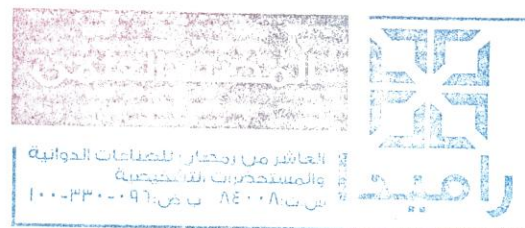 راميدا
العاشر من رمضان للصناعات الدوائية
والمستحضرات التشخيصية
س.ت: ٨٤٠٠٨ ب.ض: ٠٩٦-٣٣٠-١٠٠